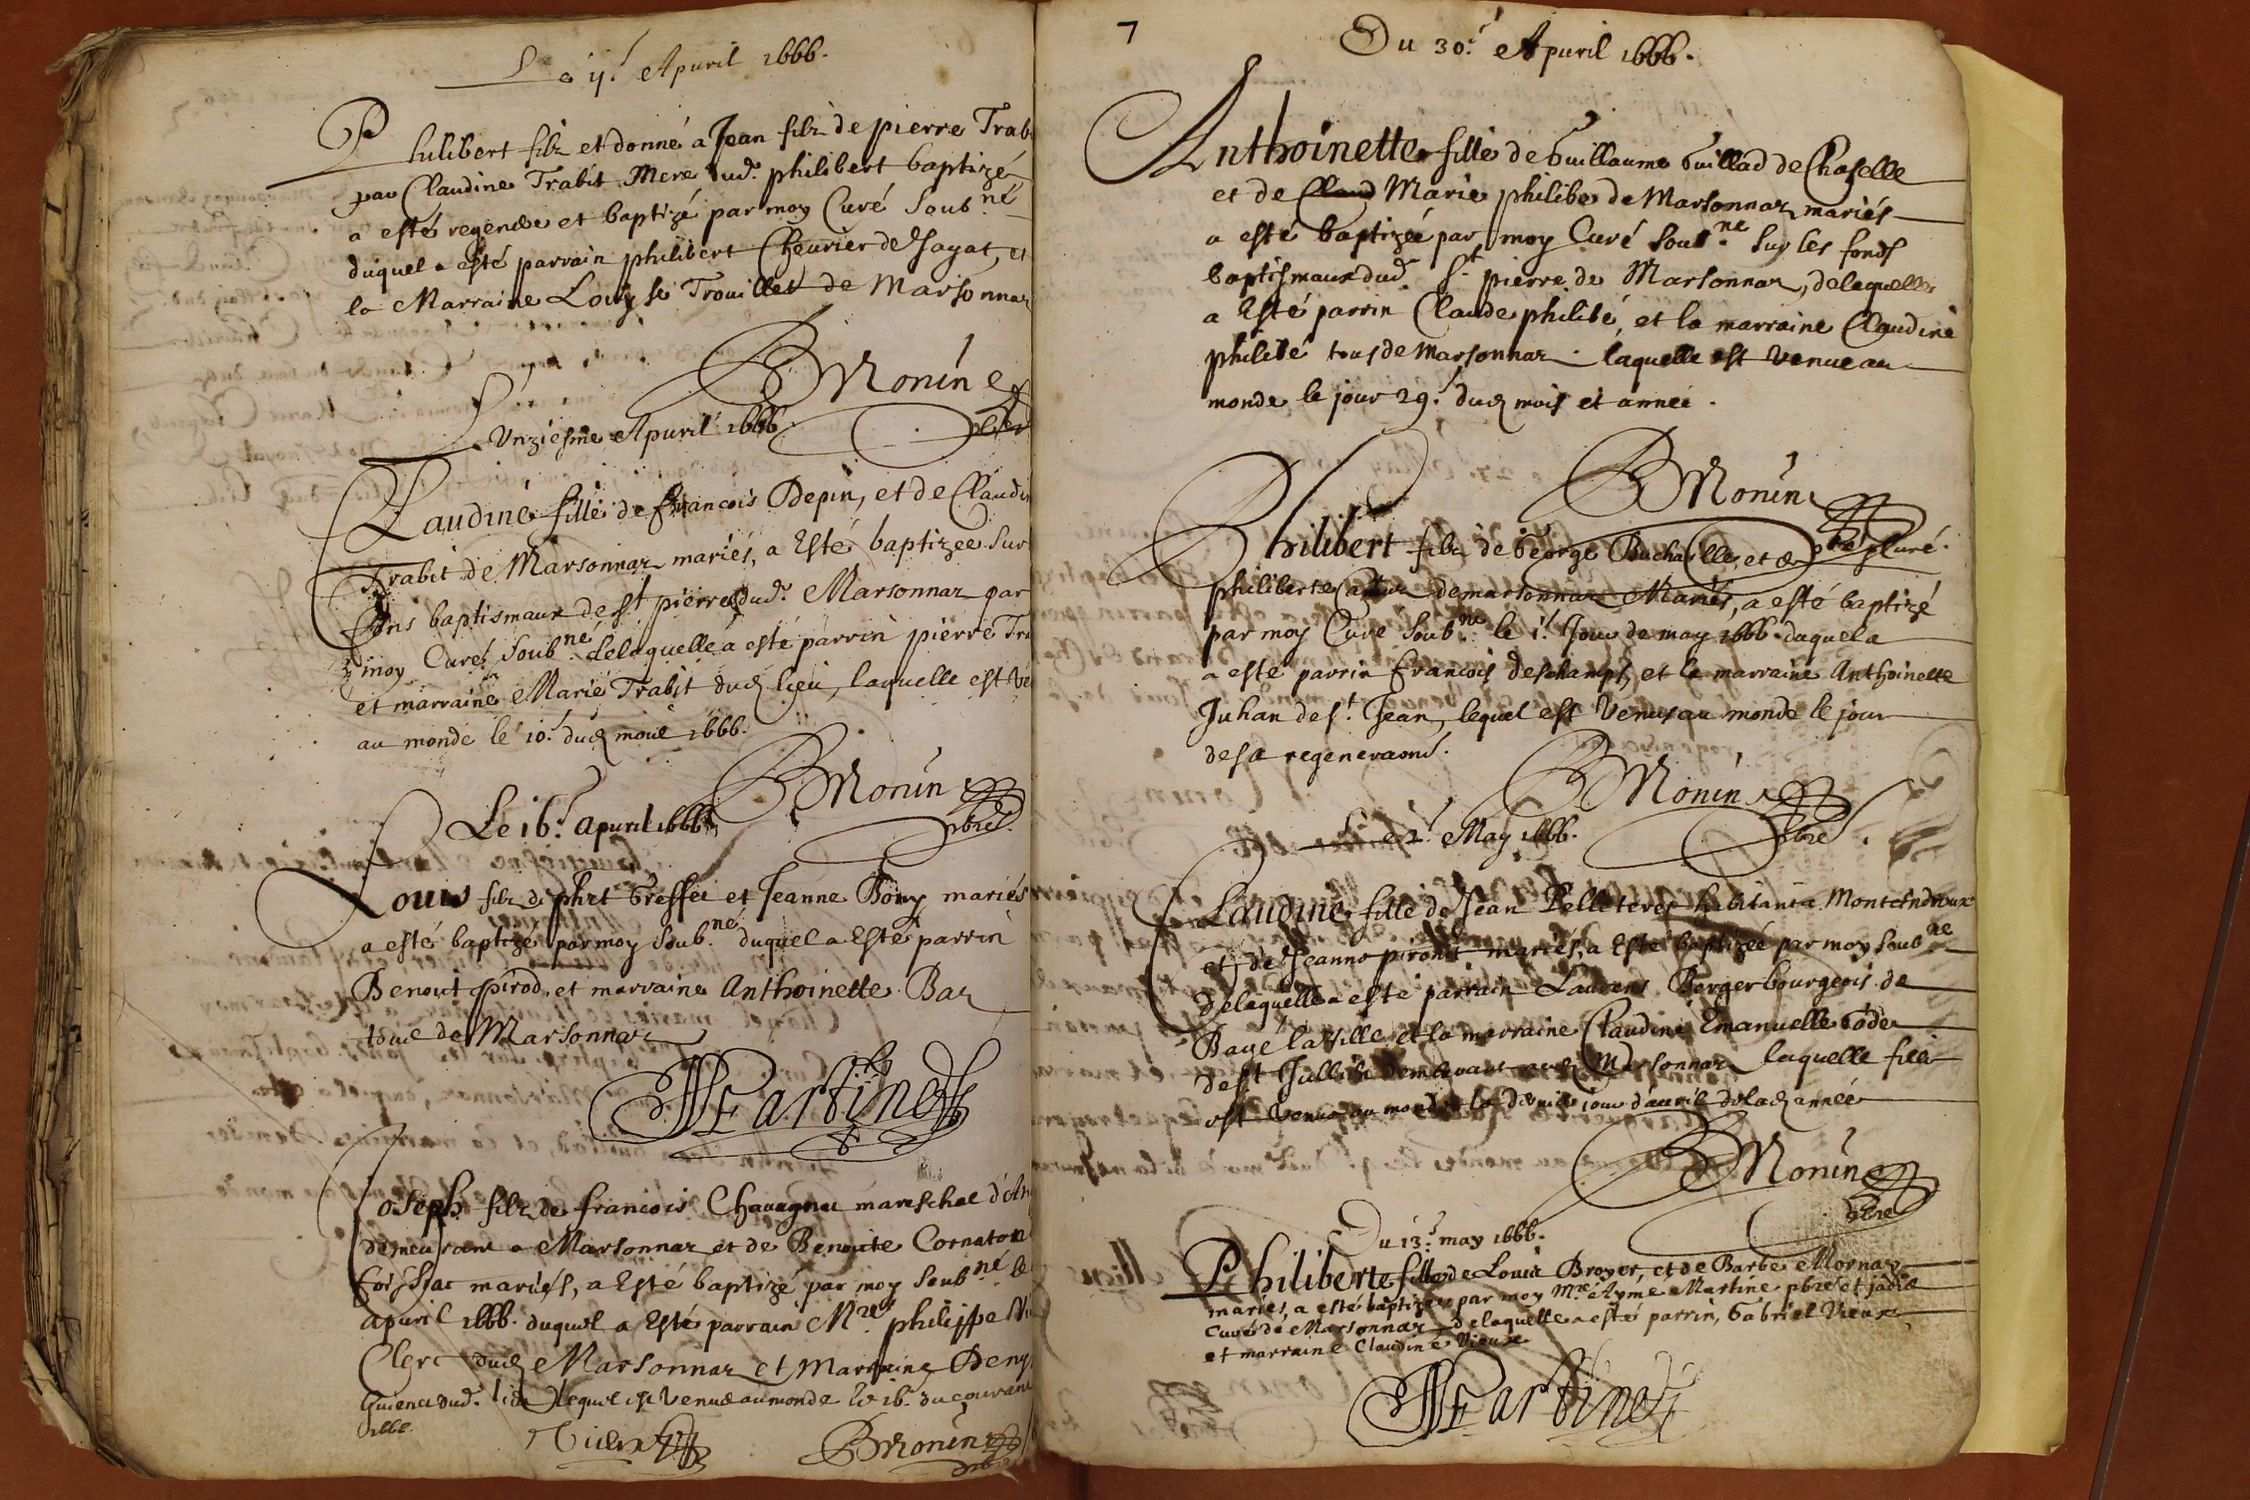 Le 4.e Apuril 1666.
Philibert filz et donné a Jean filz de pierre Trab
par Claudine Trabit Mere dud. philibert baptizé
a esté regenere et baptizé par moy Curé Soub.né
duquel a esté parrain philibert Cheurier de Jayat, et
la Marraine Louyse Trouillet de Marsonnaz
BMonin
pbre
Unziesme Apuril 1666.
Claudine fille de francois Depin, et de Claudi
Trabit de Marsonnaz mariés, a Esté baptizee Sur
fons baptismaux de St pierre dud. Marsonnaz par
moy Curé Soub.né delaquelle a esté parrin pierre Tra
et marraine Marie Trabit dud lieu, laquelle est ve
au monde le 10.e dud mois 1666.
BMonin
pbre
Le 16.e apuril 1666
Louis filz de phrt Greffet et Jeanne Bony mariés
a esté baptizé par moy Soub.né duquel a Esté parrin
Benoict pirod, et marraine Anthoinette Baz
tous de Marsonnaz
Martine
Joseph filz de francois Chauagnat mareschal d'
demeurant a Marsonnaz et de Benoite Cornaton
foissiat mariés, a Esté baptizé par moy Soub.né le
apuril 1666. duquel a Esté parrain M.re philippe
Clerc dud Marsonnaz et Marraine Deny
dud. lieu lequel est Venue au monde le 16. du courant
1666.
Vieux BMonin
pbre
7
Du 30.e Apuril 1666.
Anthoinette fille de Guillaume Guillad de Chaselle
et de Claud Marie philibe de Marsonnaz mariés
a esté baptizée par moy Curé Soub.ne Sur les fonds
baptismaux dud. St pierre de Marsonnaz, delaquelle
a Esté parrin Claude philibé, et la marraine Claudine
philibé tous de Marsonnaz. laquelle est Venue au
monde le jour 29.e dud mois et année.
BMonin
pbre Curé.
Philibert filz de George Buchaille, et de
philiberte de marsonnaz Mariés, a esté baptizé
par moy Curé Soub.ne le 1.e Jour de may 1666. duquel a
a esté parrin francois deschamps, et la marraine Anthoinette
Juhan de St. Jean, lequel est Venus au monde le jour
de sa regeneraond.
BMonin
pbre
Le 2.e May 1666.
Claudine fille de Jean Pelleteres habitant a Montendroux
et de Jeanne piront mariés, a Esté baptizée par moy Soub.ne
delaquelle a esté parrain Laurens Berger bourgeois de
Bagé la Ville et la marraine Claudine Emanuelle Gode
de St Jullin demeurant aud Marsonnaz laquelle fille
est Venue au monde le dernier jour d'auril de lad année
BMonin
pbre
Du 13.e may 1666.
Philiberte fille de Louis Broyer, et de Barbe Mornay
mariés, a esté baptizee par moy M.re Ayme Martine pbre et jadis
Curé de Marsonnaz delaquelle a esté parrin, Gabriel Vieux,
et marraine Claudine Vieux
Martine